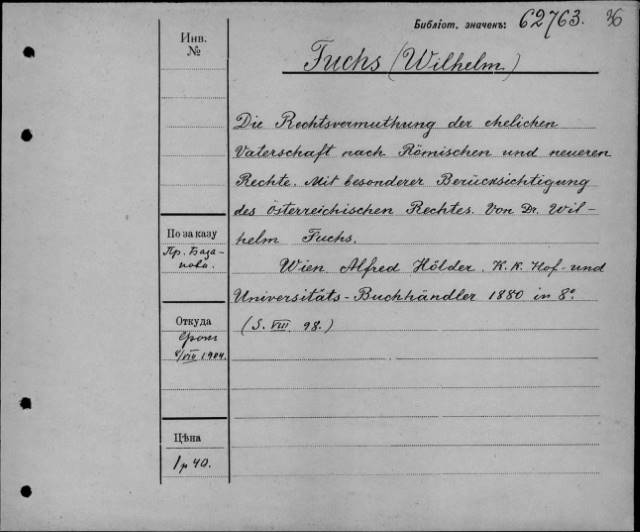 Библіот. значекъ: 62763. 36
Инв.
№
Fuchs (Wilhelm.)
Die Rechtsvermuthung der ehelichen
Vaterschaft nach Römischen und neueren
Rechte. Mit besonderer Berücksichtigung
des österreichischen Rechtes. Von Dr. Wil-
helm Fuchs.
Wien. Alfred Hölder. K. K. Hof- und
Universitäts-Buchhändler 1880 in 8°.
(S. VIII. 98.)
По заказу
Пр. База-
нова.
Откуда
VIII 1904.
Цѣна
1 р 40.